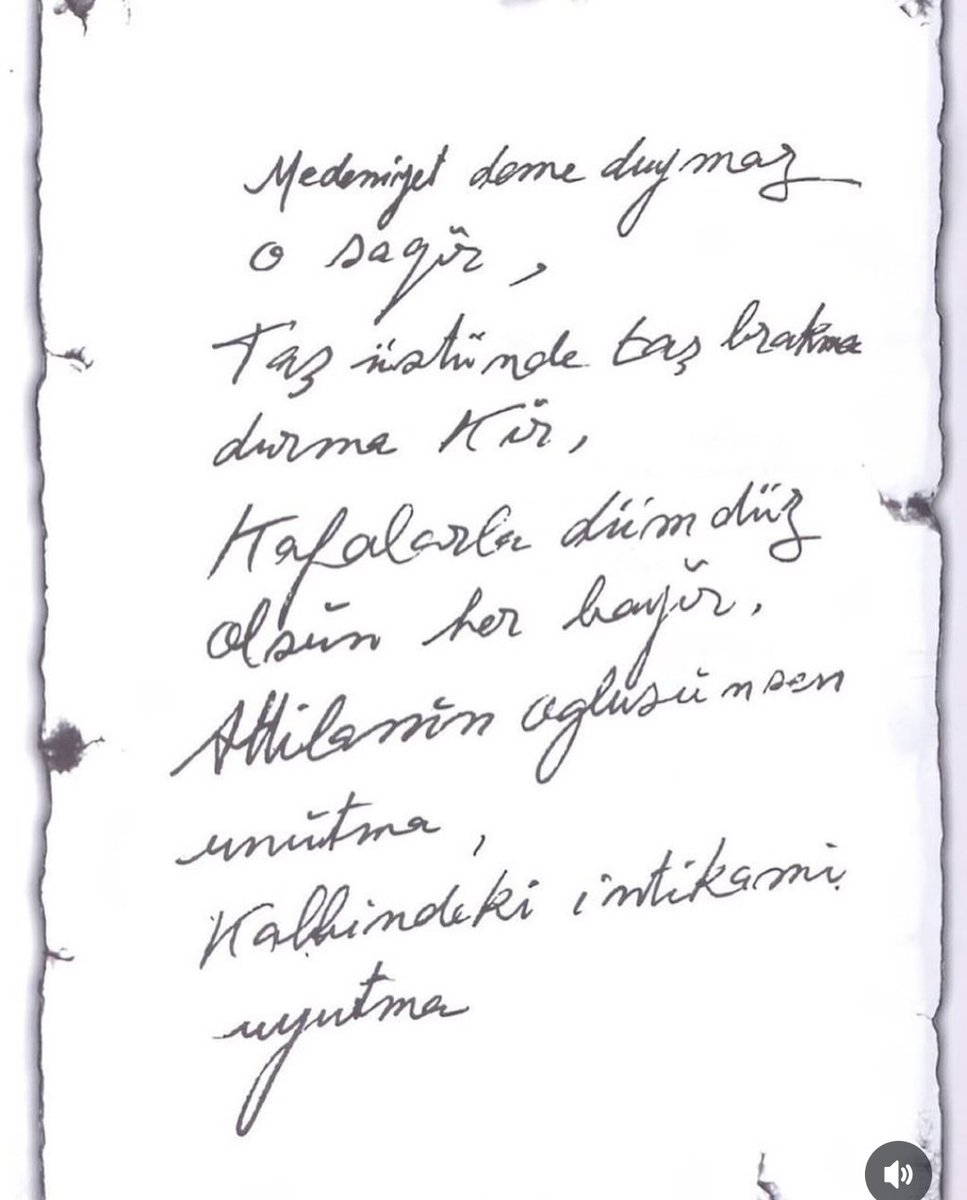 Medeniyet deme duymaz
o sagır,
Taş üstünde taş brakma
durma Kır,
Kafalarla dümdüz
olsun her bayır.
Attilanın oglusun sen
unutma,
Kalbindeki intikamı
uyutma